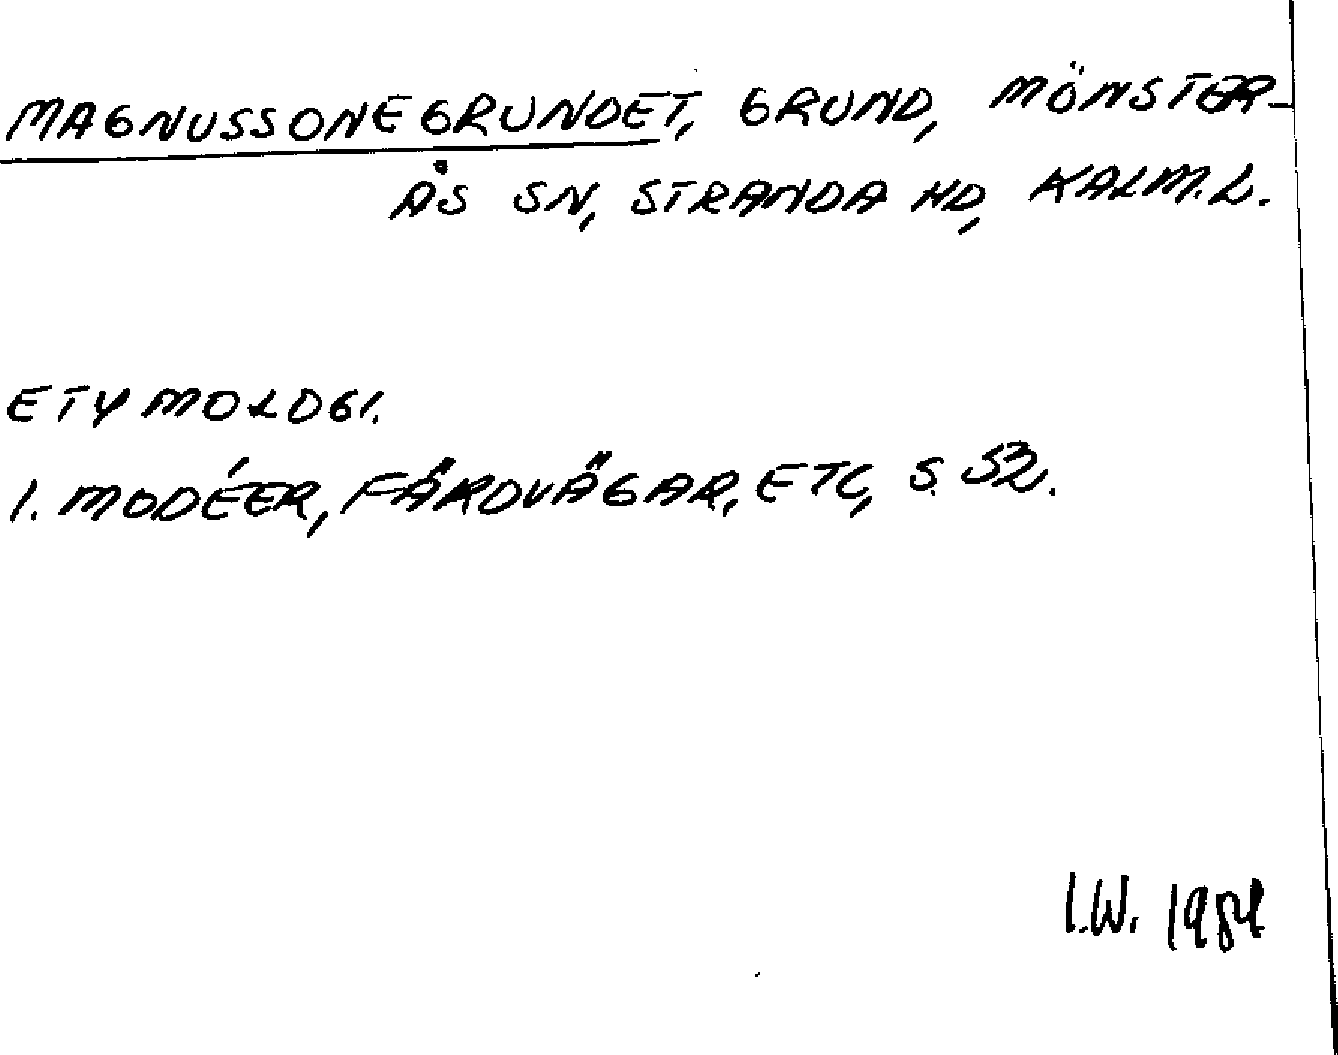 MAGNUSSONEGRUNDET, GRUND, MÖNSTER-
ÅS SN, STRANDA HD, KALM.L.
ETYMOLOGI.
1. MODÉER, FÄRDVÄGAR, ETC, S. 52.
I.W. 1984